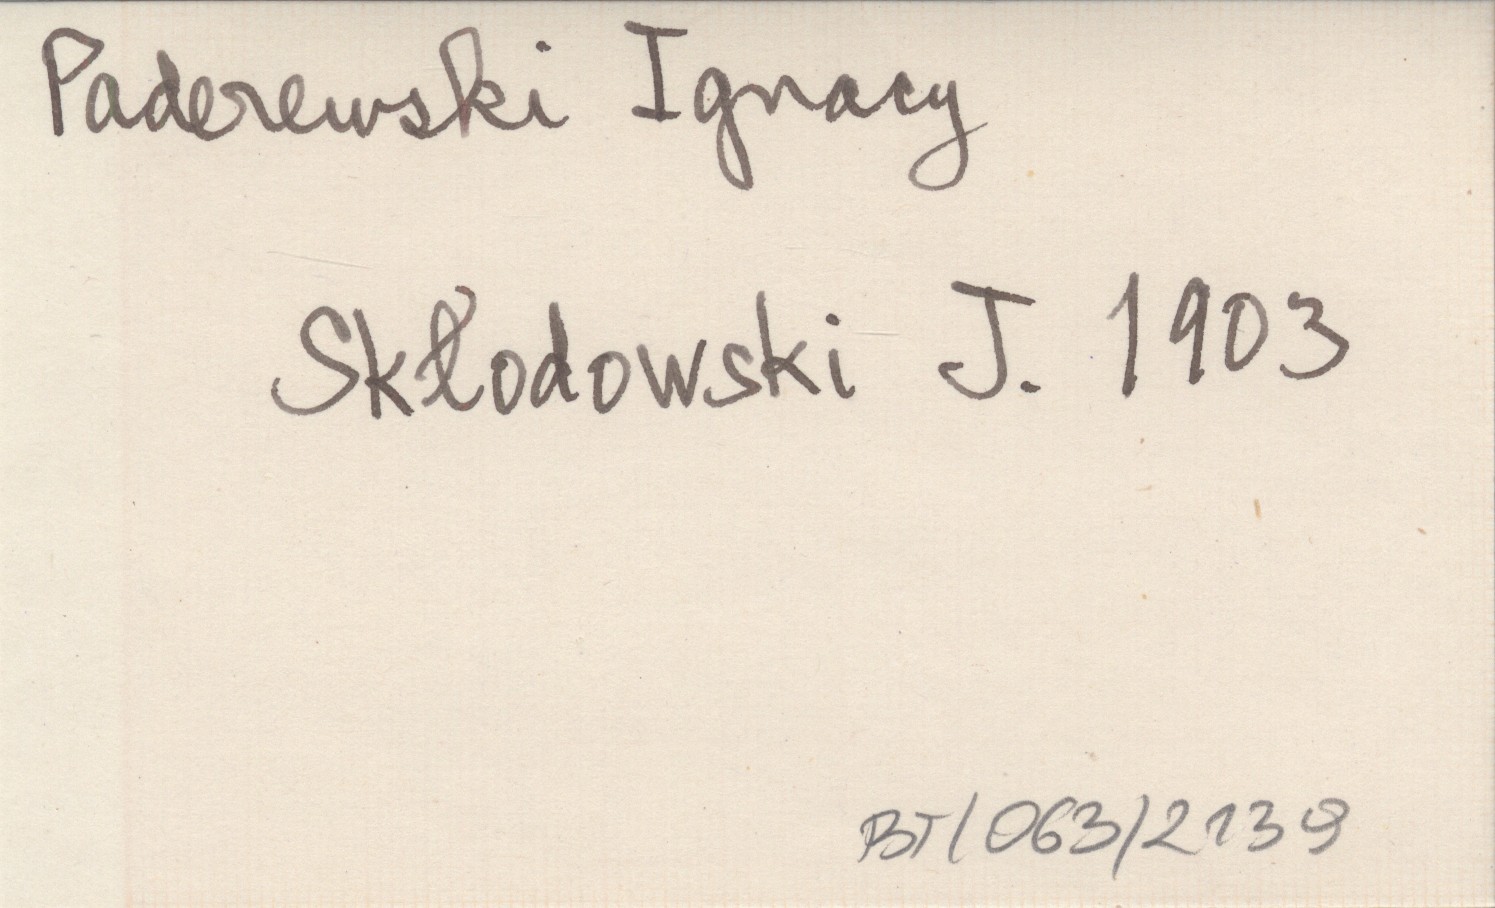 Paderewski Ignacy
Skłodowski J. 1903
BT/063/2139